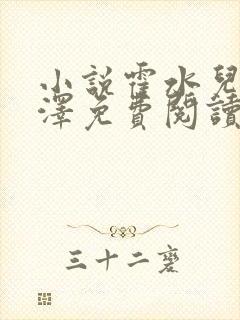 小說霍水兒
澤免費閱讀
三十二磨